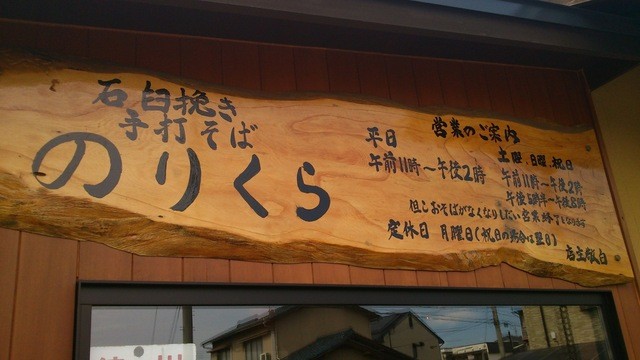 石臼挽き
手打そば
のりくら
営業のご案内
平日
午前11時〜午後2時
土曜、日曜、祝日
午前11時〜午後2時
午後5時半〜午後8時
但しおそばがなくなりしだい営業終了
定休日 月曜日(祝日の場合は翌日)
店主敬白